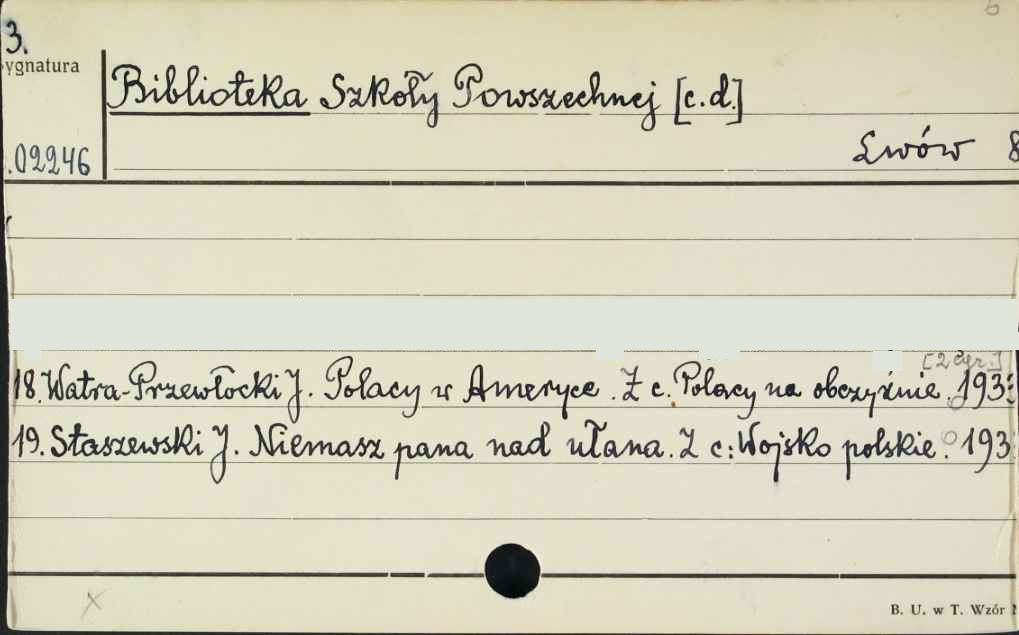 3.
ygnatura
Biblioteka Szkoły Powszechnej [c.d.]
02246
Lwów 8
[2 egz.]
18. Watra-Przewłocki J. Polacy w Ameryce. Z c. Polacy na obczyźnie. 193
19. Staszewski J. Niemasz pana nad ułana. Z c: Wojsko polskie. 193
B. U. w T. Wzór